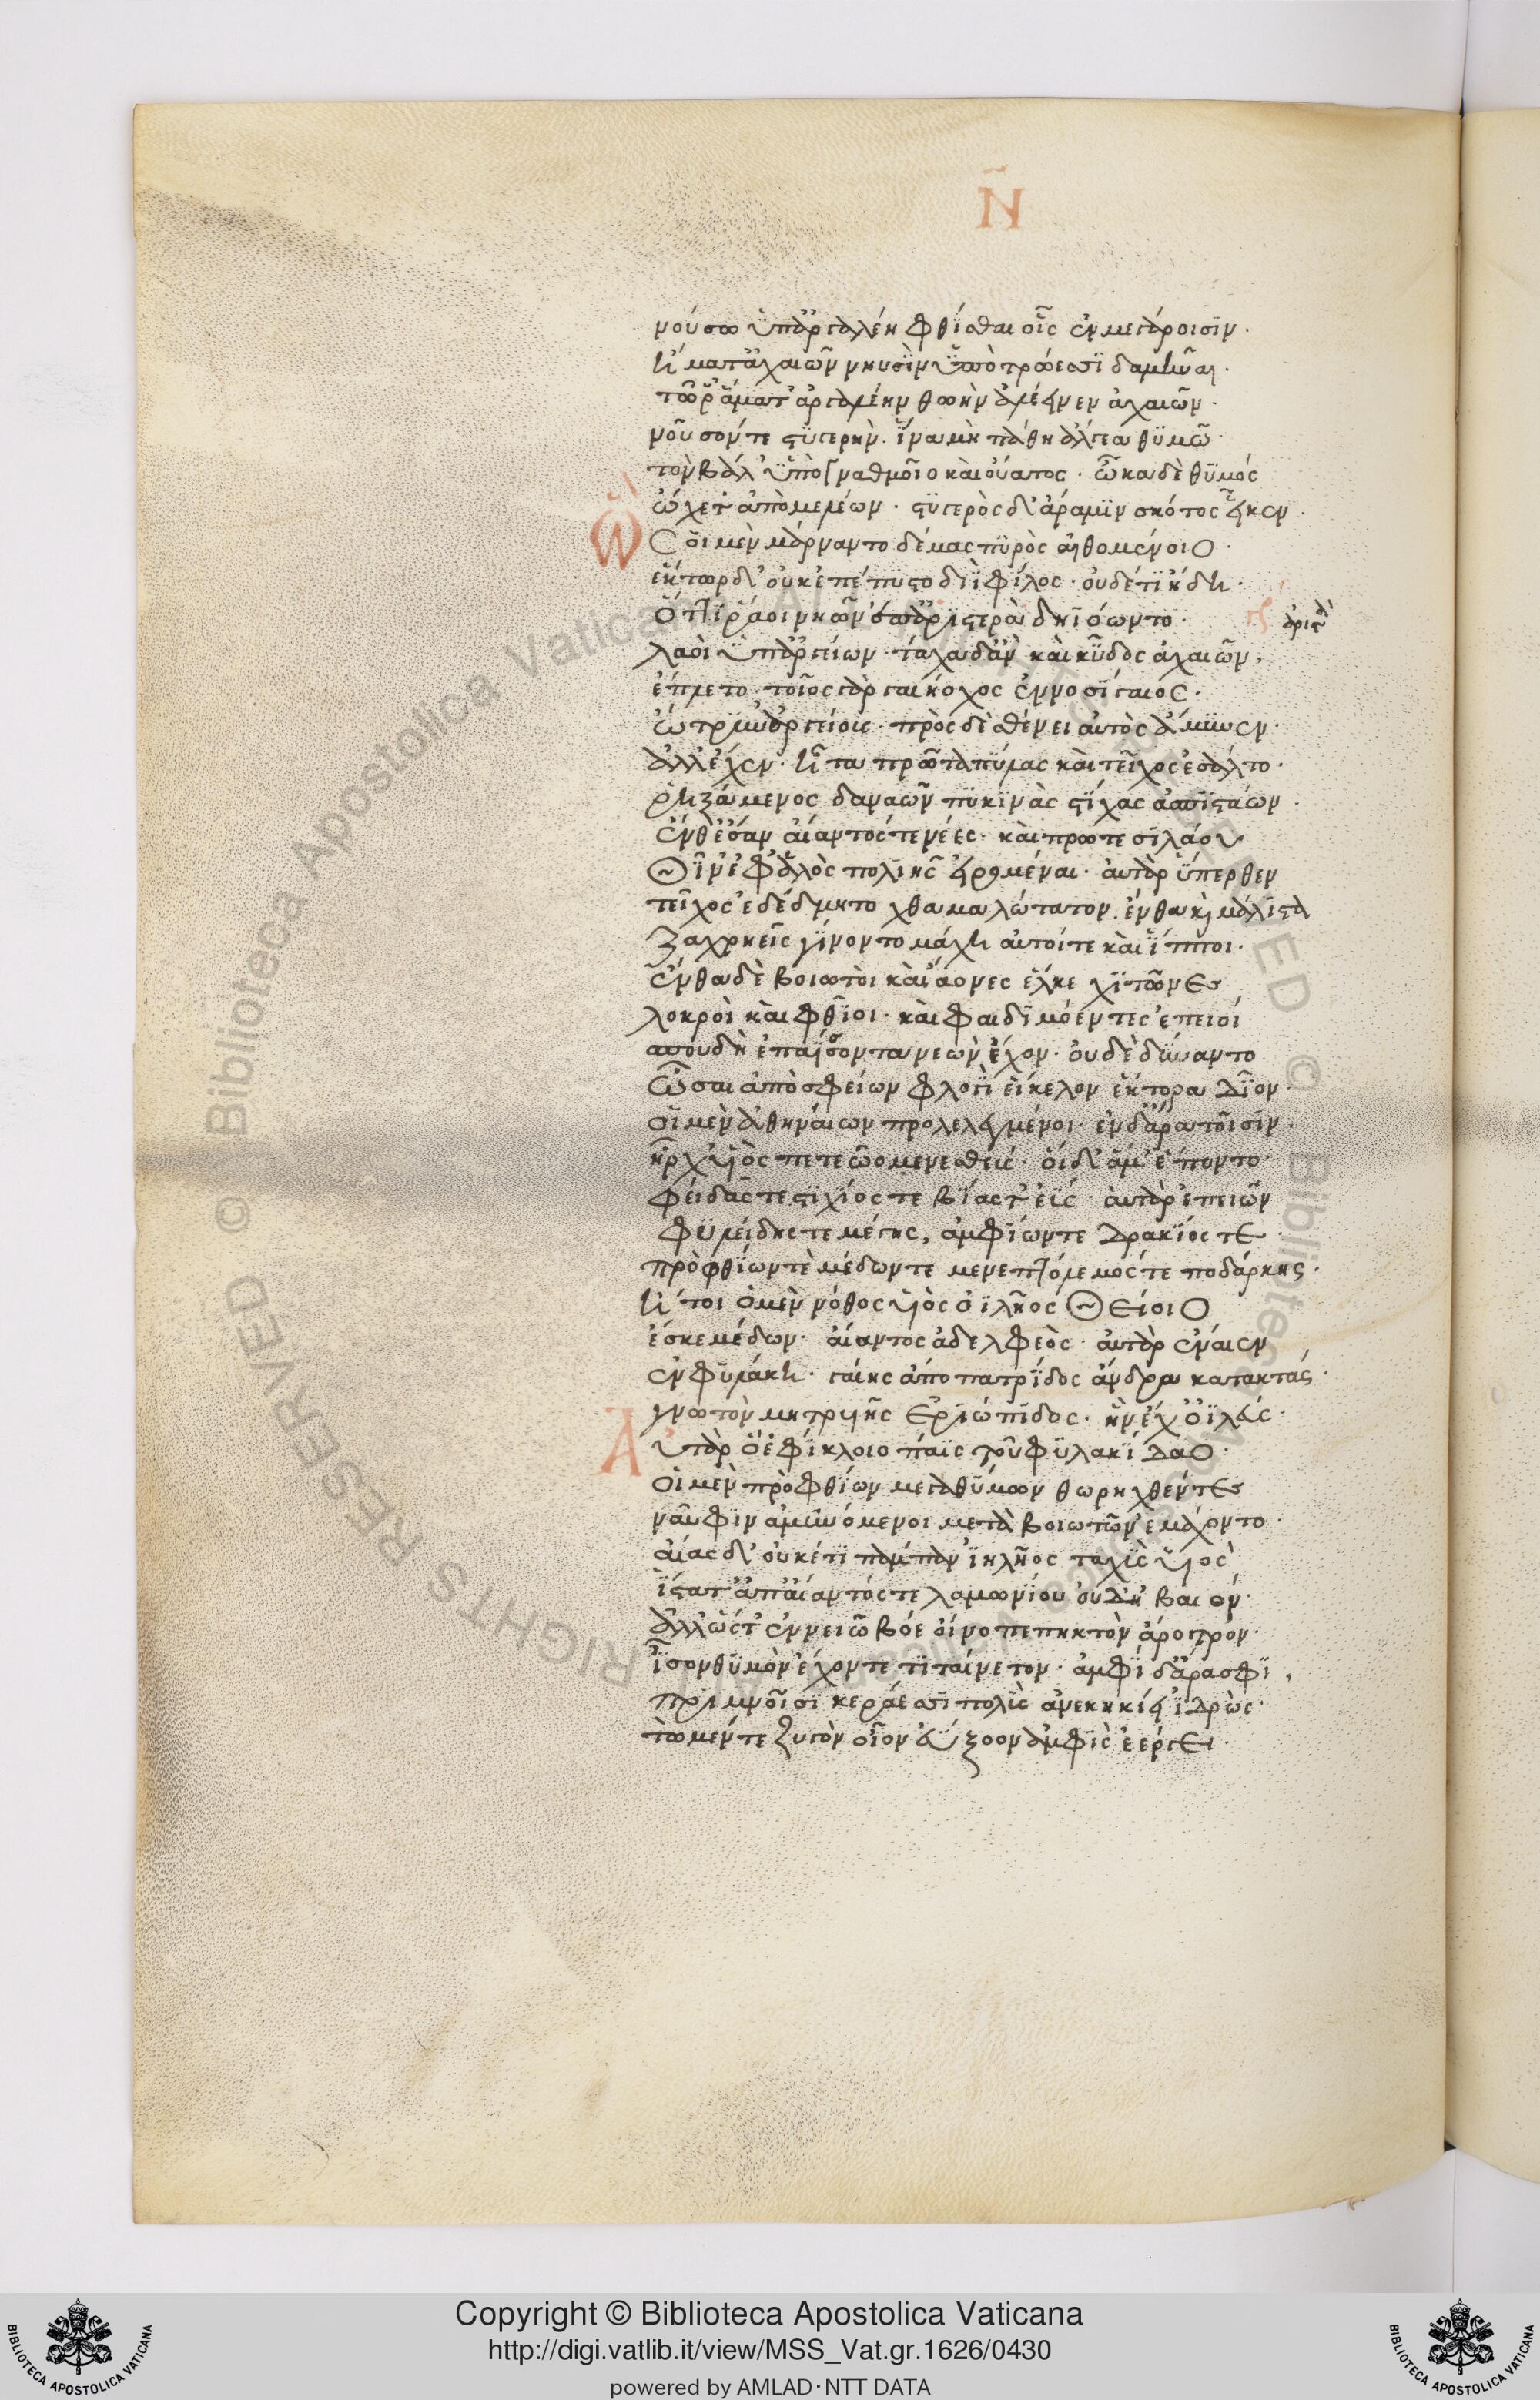 Ν̄
νούσω ὑπ' ἀργαλέη φθίσθαι οἷς ἐν μεγάροισιν·
ἢ μετ' ἀχαιῶν νηυσὶν ὑπὸ τρώεσσι δαμῆναι·
τῶ ῥ' ἅμα τ' ἀργαλέην θωὴν ἀλέεινεν ἀχαιῶν·
νοῦσόν τε στυγερὴν· ἵνα μὴ πάθη ἄλγεα θυμῶ·
τὸν βάλ' ὑπὸ γναθμοῖο καὶ οὔατος· ὦκα δὲ θυμὸς
ὤχετ' ἀπὸ μελέων· στυγερὸς δ' ἄρα μιν σκότος εἷλεν·
Ὣς οἱ μὲν μάρναντο δέμας πυρὸς αἰθομένοιο·
ἕκτωρ δ' οὐκ ἐπέπυστο διὶ φίλος· οὐδέ τι ἤδη·
ὅττί ῥά οἱ νηῶν ἐπ' ἀριστερὰ δηϊόωντο·
ἀριστ
λαοὶ ὑπ' ἀργείων· τάχα δ' ἂν καὶ κῦδος ἀχαιῶν,
ἔπλετο· τοῖος γὰρ γαιήοχος ἐννοσίγαιος·
ὤτρυν' ἀργείους· πρὸς δὲ σθένει αὐτὸς ἄμυνεν·
ἀλλ' ἔχεν· ἧ τὰ πρῶτα πύλας καὶ τεῖχος ἐσάλτο·
ῥηξάμενος δαναῶν πυκινὰς στίχας ἀσπιστάων·
ἔνθ' ἔσαν αἴαντός τε νέες· καὶ πρωτεσιλάου
Θῖν' ἐφ' ἁλὸς πολιῆς εἰρυμέναι· αὐτὰρ ὕπερθεν
τεῖχος ἐδέδμητο χθαμαλώτατον· ἔνθα καὶ μάλιστα
ζαχρηεῖς γίνοντο μάχη αὐτοί τε καὶ ἵπποι·
ἔνθα δὲ βοιωτοὶ καὶ ἰάονες ἑλκεχίτωνες
λοκροὶ καὶ φθῖοι· καὶ φαιδιμόεντες ἐπειοί
σπουδῆ ἐπαΐσσοντα νεῶν ἔχον· οὐδὲ δύναντο
ὦσαι ἀπὸ σφείων φλογὶ εἴκελον ἕκτορα δῖον·
οἱ μὲν ἀθηναίων προλελεγμένοι· ἐν δ' ἄρα τοῖσιν·
ἦρχ' υἱὸς πετεῶο μενεσθεύς· οἱ δ' ἅμ' ἕποντο·
φείδας τε στιχίος τε βίας τ' ἐΰς· αὐτὰρ ἐπειῶν
φυλείδης τε μέγης, ἀμφίων τε δρακίος τε
πρὸ φθίων τὲ μέδων τε μενεπτόλεμός τε ποδάρκης·
ἤτοι ὁ μὲν νόθος υἱὸς ὀϊλῆος Θείοιο
ἔσκε μέδων· αἴαντος ἀδελφεὸς· αὐτὰρ ἔναιεν
ἐν φυλάκη· γαίης ἄπο πατρίδος ἄνδρα κατακτάς·
γνωτὸν μητρυιῆς ἐριώπιδος· ἣν ἔχ' ὀϊλεύς·
Αὐτὰρ ὁ ἰφίκλοιο πάϊς τοῦ φυλακίδαο·
οἱ μὲν πρὸ φθίων μεγαθύμων θωρηχθέντες
ναῦφιν ἀμυνόμενοι μετὰ βοιωτῶν ἐμάχοντο·
αἴας δ' οὐκέτι πάμπαν ὀϊλῆος ταχὺς υἱὸς
ἵστατ' ἀπ' αἴαντος τελαμωνίου οὐδ' ἠβαιόν·
ἀλλ' ὥς τ' ἐν νειῶ βόε οἴνοπε πηκτὸν ἄροτρον·
ἶσον θυμὸν ἔχοντε τιταίνετον· ἀμφὶ δ' ἄρα σφι,
πρυμνοῖσι κεράεσσι πολὺς ἀνεκηκίει ἱδρὼς·
τὼ μέν τε ζυγὸν οἶον ἐΰξοον ἀμφὶς ἐέργει·
Copyright © Biblioteca Apostolica Vaticana
http://digi.vatlib.it/view/MSS_Vat.gr.1626/0430
powered by AMLAD·NTT DATA